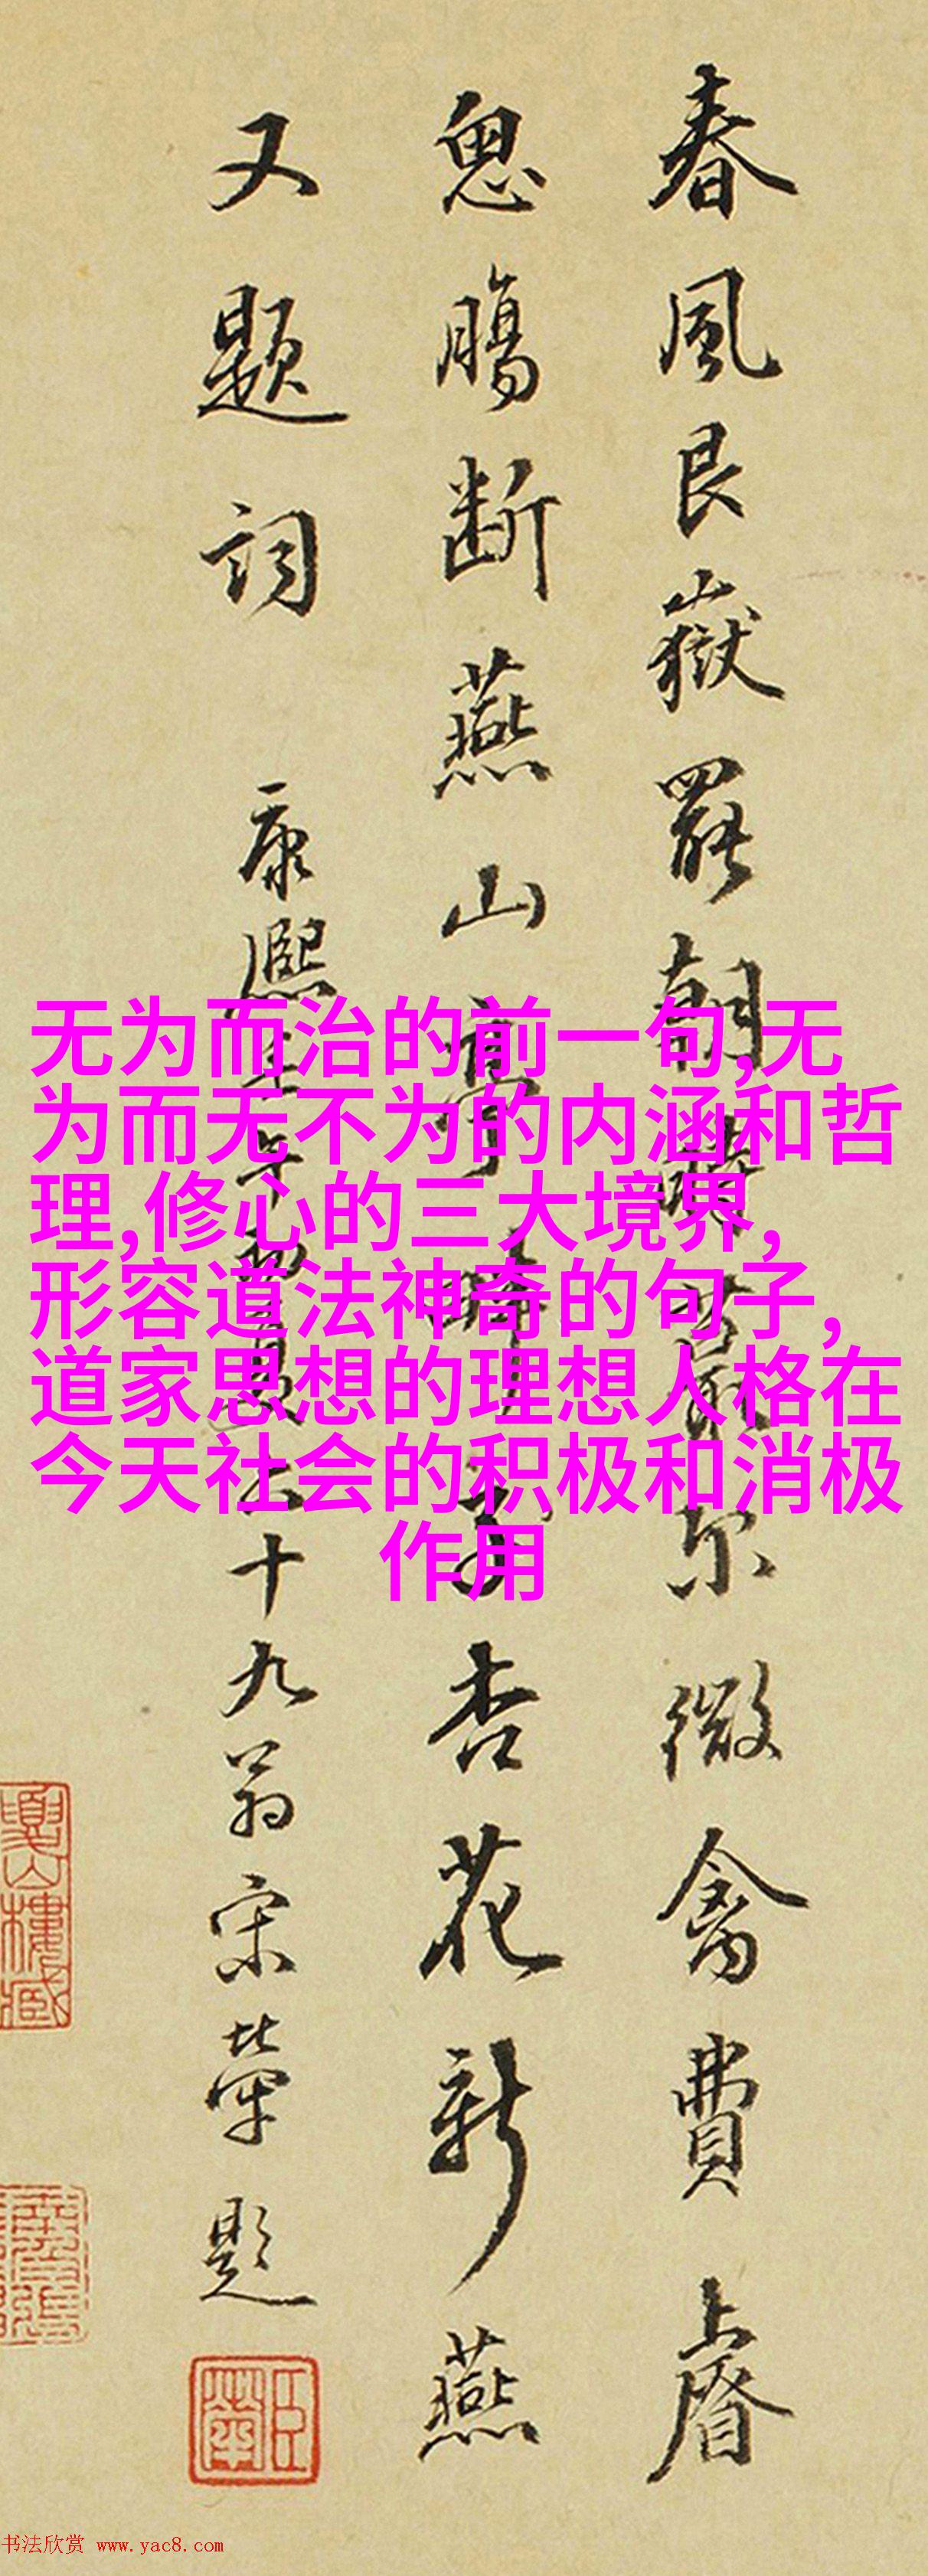 春風艮嶽罷朝尔微禽費上
思腸斷燕山亭杏花新燕
又題詞 康熙壬午十九翁宋犖題
无为而治的前一句,无
为而无不为的内涵和哲
理,修心的三大境界,
形容道法神奇的句子,
道家思想的理想人格在
今天社会的积极和消极
作用
书法欣赏 www.yac8.com